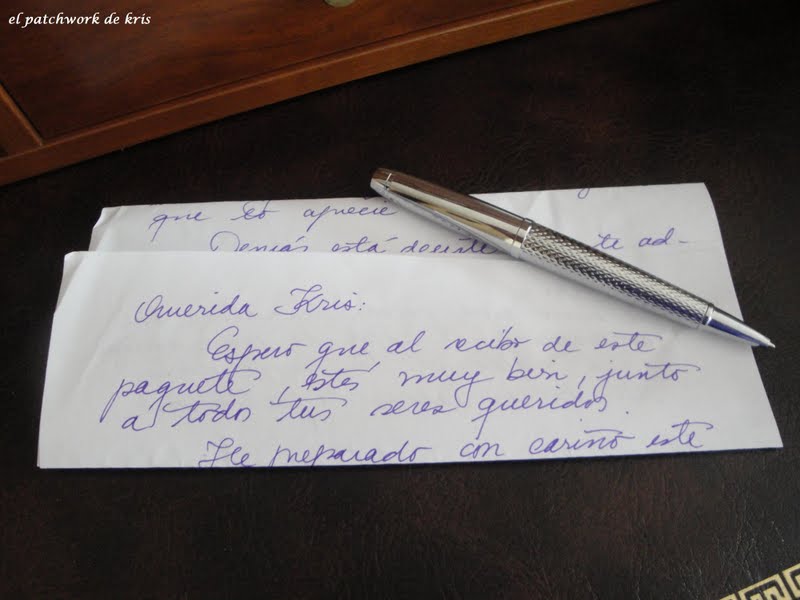 el patchwork de kris
que lo aprecie
Demás está decirte te ad-
Querida Kris:
Espero que al recibo de este
paquete, estés muy bien, junto
a todos tus seres queridos.
He preparado con cariño este